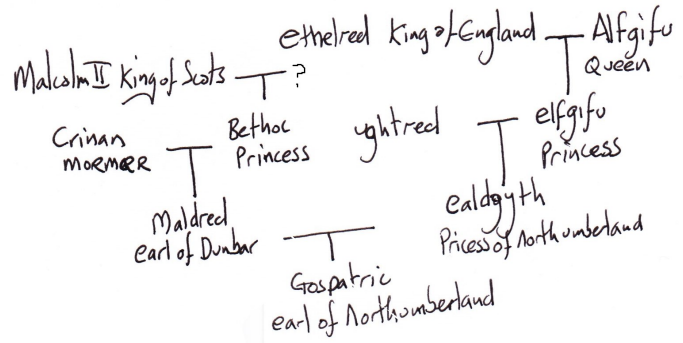 ethelred King of England Alfgifu
Queen
Malcolm II King of Scots ?
Crinan
MORMER
Bethoc
Princess
yghtred
elfgifu
Princess
Maldred
earl of Dunbar
ealdgyth
Pricess of Northumberland
Gospatric
earl of Northumberland